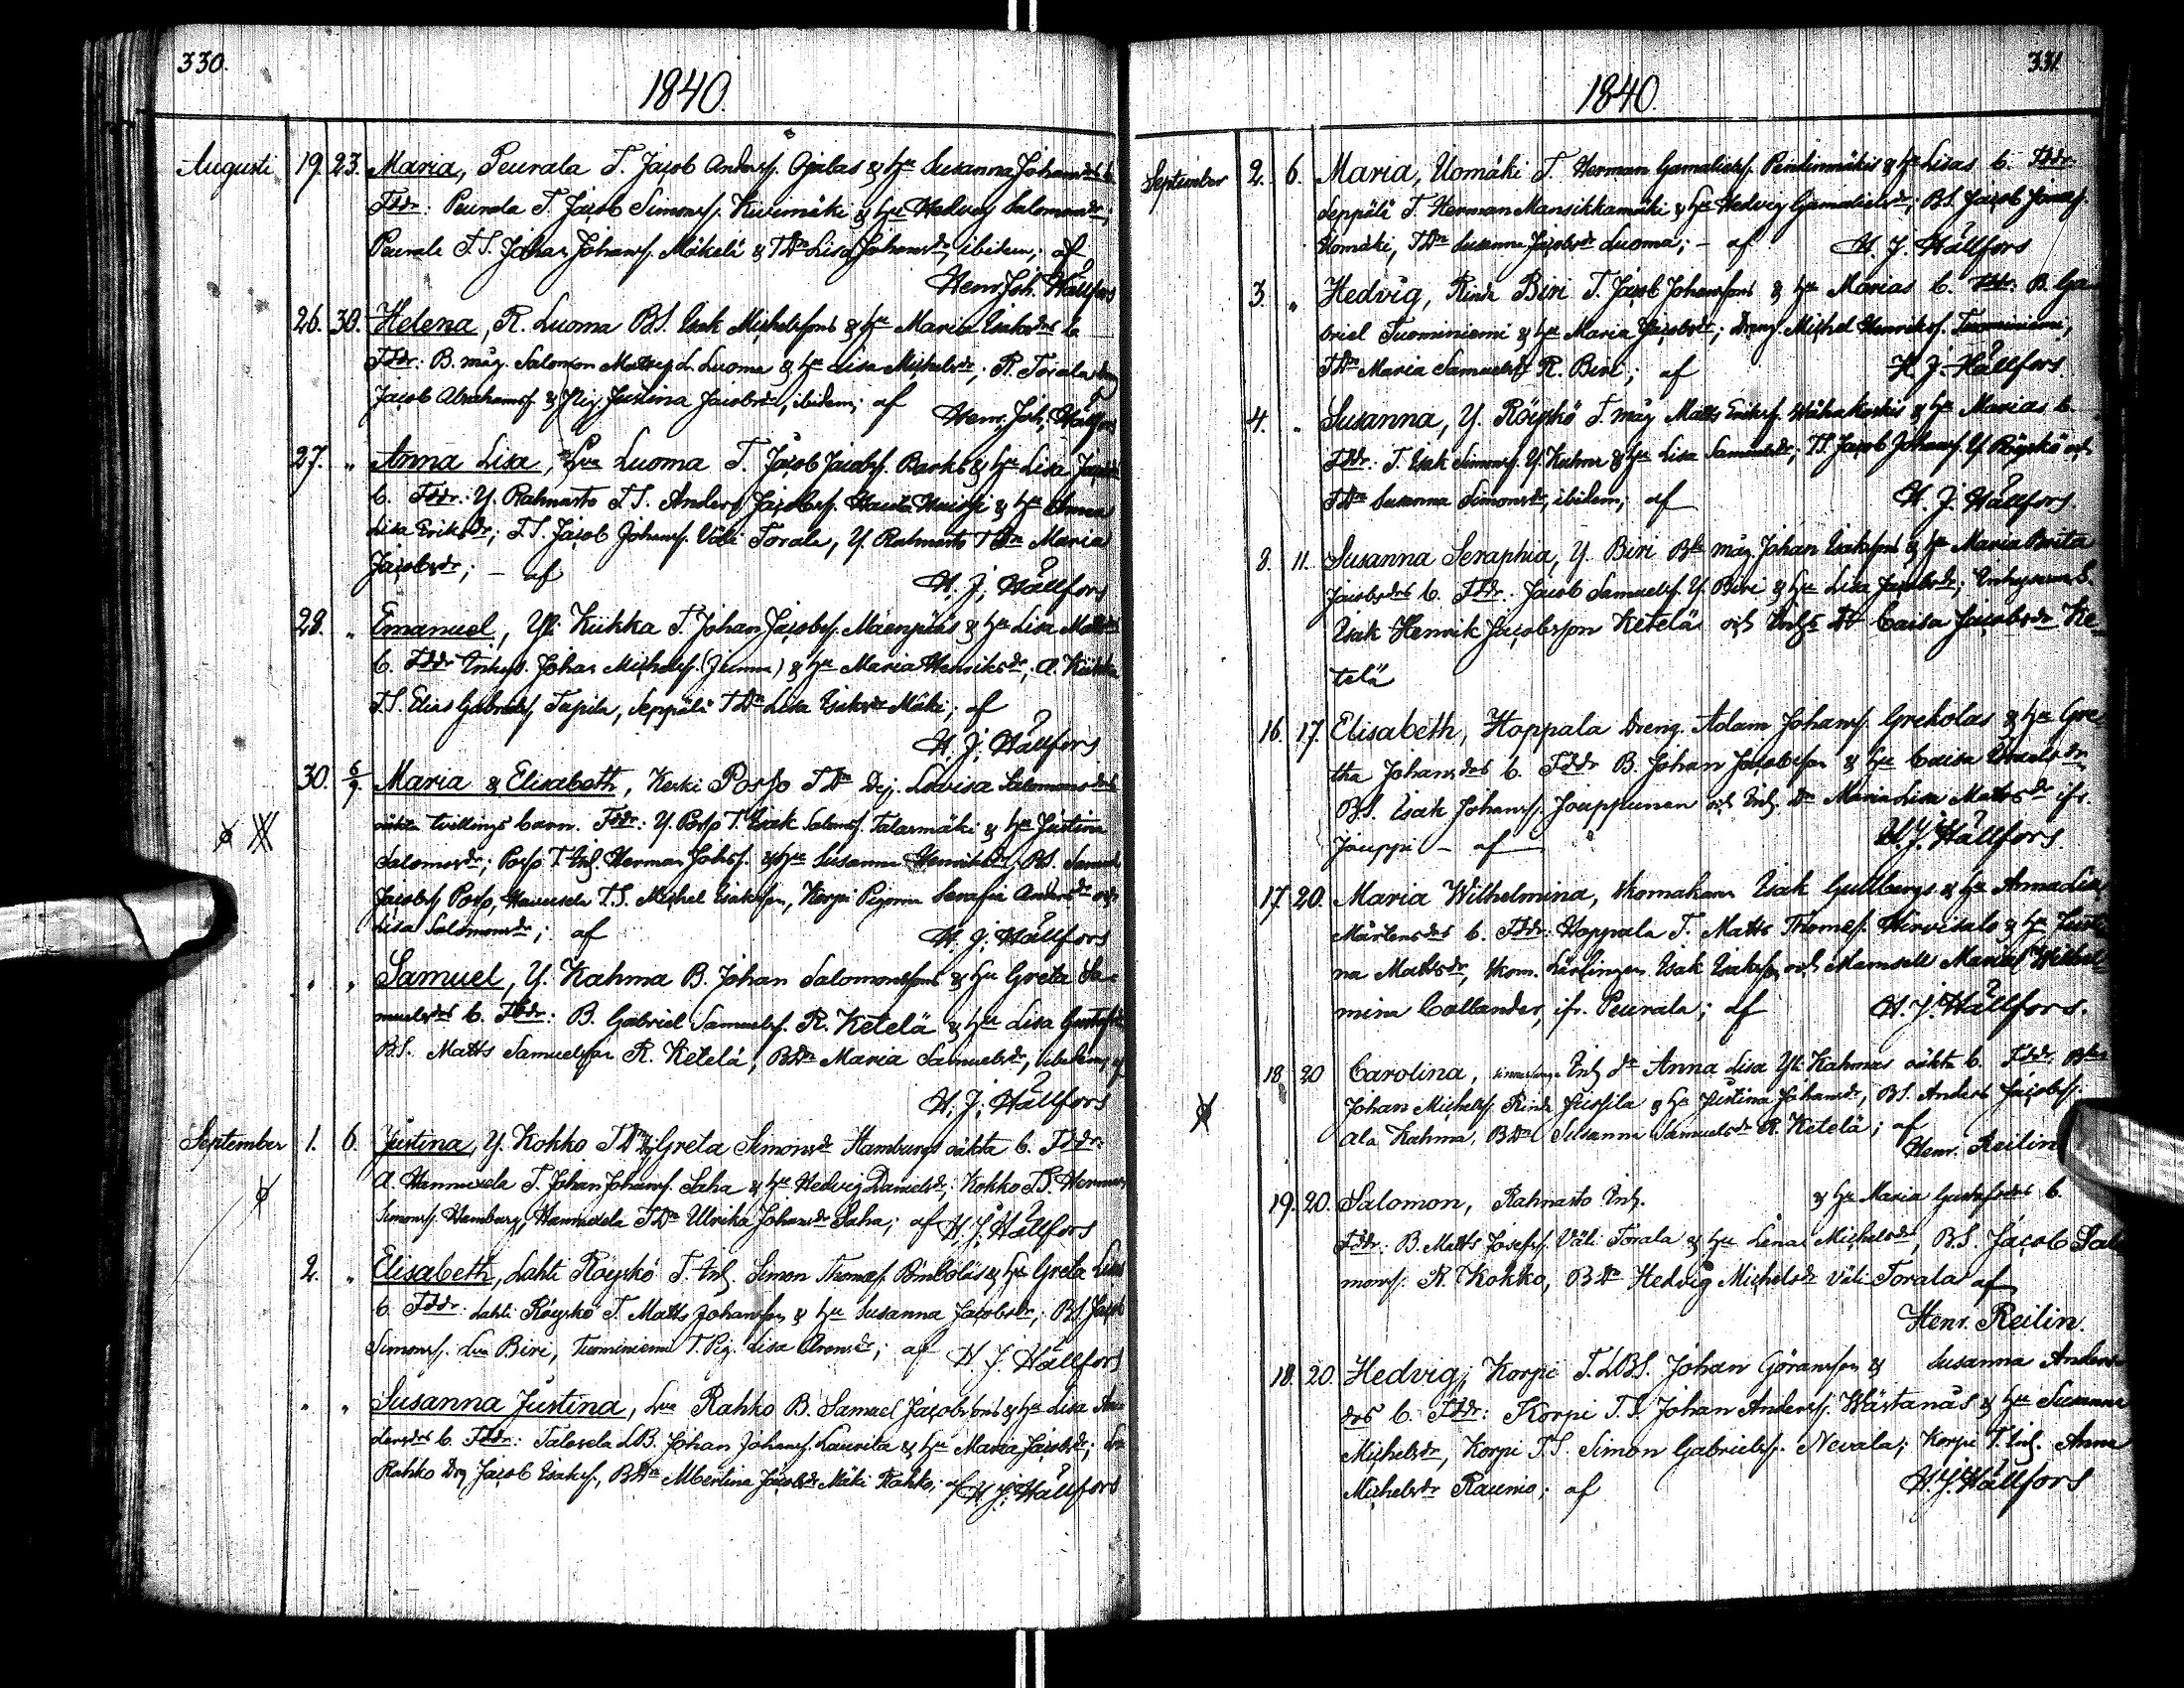 330.
1840.
Augusti 19. 23. Maria, Peurala T. Jacob Andersf. Ojalas & hu Susanna Johansdrs b.
Fddr: Peurala T. Jacob Simonsf. Kivimäki & hu Hedvig Salomonsdr;
Peurala T.S. Johan Johansf. Mäkelä & TDn Lisa Johansdr, ibidem; af
Henr. Joh. Hällfors
26. 30. Helena, R. Luoma BS. Isak Michelssons & hu Maria Isaksdrs b.
Fddr: B. måg Salomon Mattsson Luoma & hu Lisa Michelsdr; R. Torala drg
Jacob Abrahamsf & Pig. Justina Jacobsdr, ibidem; af Henr. Joh. Hällfors
27. " Anna Lisa, Lva Luoma T. Jacob Jacobsf. Barks & hu Lisa
b. Fddr: Y. Rahnasto T.S. Anders Jacobsf. & hu Anna
Lisa Eriksdr; T.S. Jacob Johansf. Väli Torala, Y. Rahnasto TDn Maria
Jacobsdr; – af H. J. Hällfors
28. " Emanuel, Yli Kiikka T. Johan Jacobsf. Mäenpääs & hu Lisa Mattsdrs
b. Fddr Inhys. Johan Michelsf. & hu Maria Henriksdr; A. Kiikka
T.S. Elias Gabrielsf. Tapila, Seppälä TDn Lisa Isaksdr Mäki; af
H. J. Hällfors
30. 6/9. Maria & Elisabeth, Kerki Poso TDn Dej. Lovisa Salomonsdrs
oäkta tvillings barn. Fddr: Y. Poso T. Isak Salomsf. Talasmäki & hu Justina
Salomonsdr; Poso T. Inh. Herman Johsf. & hu Susanna Henriksdr; BS. Samuel
Jacobsf. Poso, T.S. Michel Isaksson, Korpi Pigorna Serafia Andersdr och
Lisa Salomonsdr; af H. J. Hällfors
" " Samuel, Y. Kahma B. Johan Salomonssons & hu Greta Sa-
muelsdrs b. Fddr: B. Gabriel Samuelsf. R. Ketelä & hu Lisa Gustafsdr
B.S. Matts Samuelsson R. Ketelä, BDn Maria Samuelsdr, ibidem; af
H. J. Hällfors
September 1. 6. Justina, Y. Kokko TDn Greta Simonsdr Hamburgs oäkta b. Fddr:
A. Hannuxela T. Johan Johansf. Saha & hu Hedvig Danielsdr; Kokko T.S. Herman
Simonsf. Hamburg, Hannuxela TDn Ulrika Johansdr Saha; af H. J. Hällfors
2. " Elisabeth, Lahti Röyskö T. Inh. Simon Thomasf. & hu Greta
b. Fddr: Lahti Röyskö T. Matts Johansson & hu Susanna Jacobsdr; BS. Jacob
Simonsf. Lva Biri, Tuominiemi T. Pig. Lisa Aronsdr; af H. J. Hällfors
" " Susanna Justina, Lva Rahko B. Samuel Jacobssons & hu Lisa An-
dersdrs b. Fddr: LB. Johan Johansf. Laurila & hu Maria Jacobsdr; Lva
Rahko Drg Jacob Isaksf., BDn Albertina Jacobsdr Mäki Rahko; af H. J. Hällfors
331.
1840.
September 2. 6. Maria, Uomäki T. Herman Gamalielsf. Penttinmäkis & hu Lisas b. Fddr
Seppälä T. Herman Mansikkamäki & hu Hedvig Gamalielsdr; BS. Jacob Jonasf.
Uomäki, TDn Susanna Jacobsdr Luoma; – af H. J. Hällfors
3. " Hedvig, Rinda Biri T. Jacob Johanssons & hu Marias b. Fddr. B. Ga-
briel Tuominiemi & hu Maria Jacobsdr; Dreng Michel Henriksf. Tuominiemi,
TDn Maria Samuelsdr R. Biri; af H. J. Hällfors.
4. " Susanna, Y. Röyskö T. måg Matts Eriksf. Wähäkoskis & hu Marias b.
Fddr: T. Isak Simonsf. Y. & hu Lisa Samuelsdr; TS. Jacob Johansf. Y. Röyskö och
TDn Susanna Simonsdr, ibidem; af H. J. Hällfors.
8. 11. Susanna Seraphia, Y. Biri Bds måg Johan Isakssons & hu Maria Brita
Jacobsdrs b. Fddr. Jacob Samuelsf. Y. Biri & hu Lisa Jacobsdr; Inhyses S.
Isak Henrik Jacobsson Ketelä och Inhs Dr Caisa Jacobsdr Ke-
telä
16. 17. Elisabeth, Hoppala Dreng. Adam Johansf. Grekolas & hu Gre-
tha Johansdrs b. Fddr B. Johan Jacobsson & hu Caisa
BS. Isak Johansf. Jouppunen och Inh. Dr Maria Lisa Mattsdr ifr.
Jouppi – af H. J. Hällfors.
17. 20. Maria Wilhelmina, Skomakaren Isak Gullbergs & hu Anna Lisa
Mårtensdrs b. Fddr: Hoppala T. Matts Thomasf. Hirvisalo & hu Justi-
na Mattsdr, Skom. Lärlingen Isak Isaksson och Mamsell Maria Wilhel-
mina Callander, ifr. Peurala; af H. J. Hällfors.
18 20 Carolina, Inh dr Anna Lisa Yli Kahmas oäkta b. Fddr.
Johan Michelsf. Rinda Jussila & hu Justina Johansdr, BS. Anders Jacobsf.
Ala Kahma, BDn Susanna Samuelsdr R. Ketelä; af
Henr. Reilin
19. 20. Salomon, Rahnasto Inh. & hu Maria Gustafsdrs b.
Fddr: B. Matts Josefsf. Väli Torala & hu Lena Michelsdr, B.S. Jacob Salo-
monsf. R. Kokko, BDn Hedvig Michelsdr Väli Torala af
Henr. Reilin.
18. 20. Hedvig, Korpi T.LBS. Johan Göransson & Susanna Anders-
drs b. Fddr: Korpi T.S. Johan Andersf. Wästanäs & hu Susanna
Michelsdr, Korpi TS. Simon Gabrielsf. Nevala; Korpi T. Inh. Anna
Michelsdr Raunio; af H. J. Hällfors